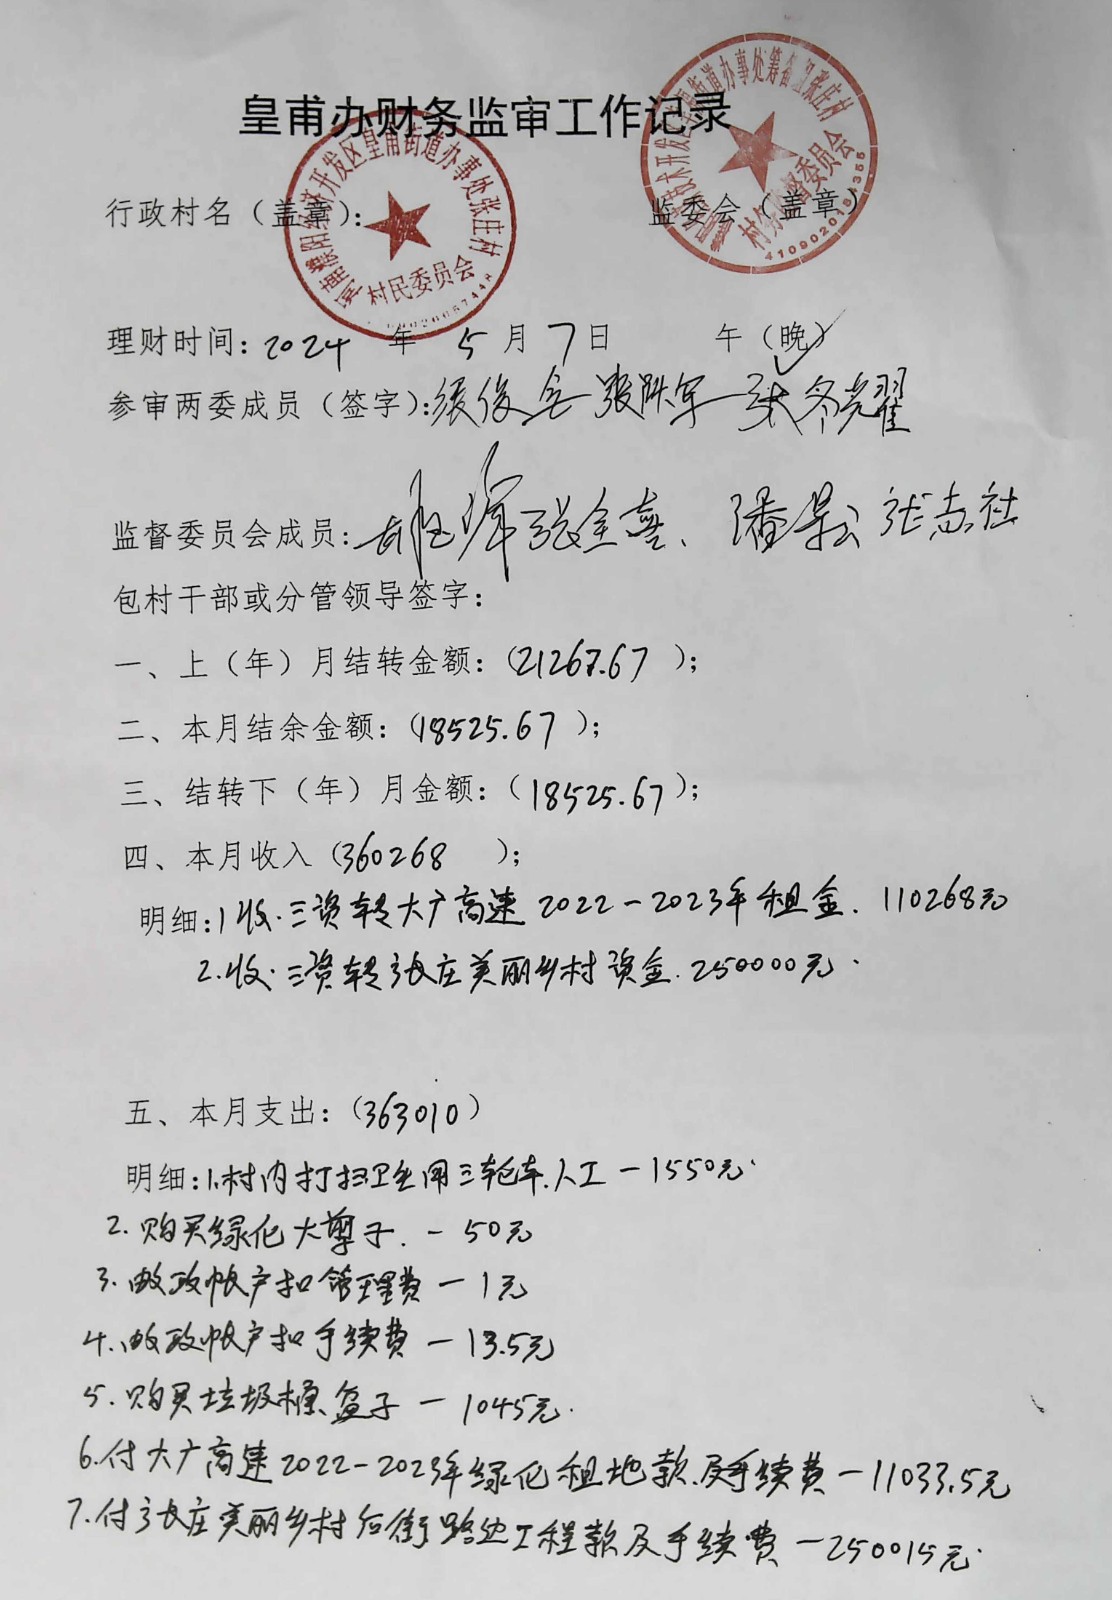 皇甫办财务监审工作记录
河南濮阳经济开发区皇甫街道办事处张庄村
村民委员会
街道办事处筹备组张庄村
村务监督委员会
行政村名（盖章）：
监委会（盖章）
理财时间：2024 年 5 月 7 日 午（晚）
参审两委成员（签字）：
监督委员会成员： 张金喜、 张志社
包村干部或分管领导签字：
一、上（年）月结转金额：（21267.67 ）；
二、本月结余金额：（18525.67 ）；
三、结转下（年）月金额：（18525.67）；
四、本月收入（360268 ）；
明细：1收.三资转大广高速2022-2023年租金. 110268元
2.收.三资转张庄美丽乡村资金.250000元.
五、本月支出：（363010）
明细：1.村内打扫卫生用三轮车.人工-1550元.
2.购买绿化大剪子.-50元
3.邮政帐户扣管理费-1元
4.邮政帐户扣手续费-13.5元
5.购买垃圾桶.盒子-1045元.
6.付大广高速2022-2023年绿化租地款.及手续费-11033.5元
7.付张庄美丽乡村后街路边工程款及手续费-250015元.